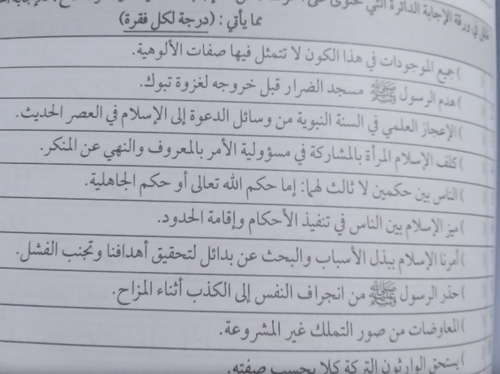 ظلل في ورقة الإجابة الدائرة التي تحتوي على
مما يأتي: (درجة لكل فقرة)
) جميع الموجودات في هذا الكون لا تتمثل فيها صفات الألوهية.
) هدم الرسول ﷺ مسجد الضرار قبل خروجه لغزوة تبوك.
) الإعجاز العلمي في السنة النبوية من وسائل الدعوة إلى الإسلام في العصر الحديث.
) كلف الإسلام المرأة بالمشاركة في مسؤولية الأمر بالمعروف والنهي عن المنكر.
) الناس بين حكمين لا ثالث لهما: إما حكم الله تعالى أو حكم الجاهلية.
) ميز الإسلام بين الناس في تنفيذ الأحكام وإقامة الحدود.
) أمرنا الإسلام ببذل الأسباب والبحث عن بدائل لتحقيق أهدافنا وتجنب الفشل.
) حذر الرسول ﷺ من انجراف النفس إلى الكذب أثناء المزاح.
) المعاوضات من صور التملك غير المشروعة.
) يستحق الوارثون التركة كلا بحسب صفته.